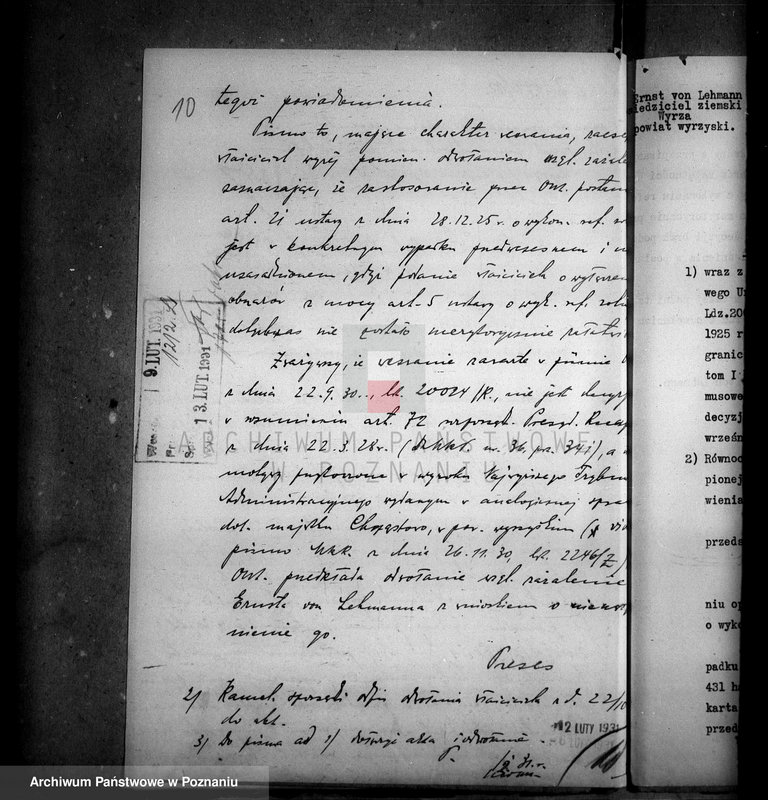 10
tegoż powiadomienia.
Pismo to, mające charakter wezwania,
właściciel wyżej pomien. odwołaniem wzgl. zażale
zaznaczając, że zastosowanie przez Okr. postan
art. 21 ustawy z dnia 28.12.25 r. o wykon. ref.
jest w konkretnym wypadku przedwczesnem i
uzasadnionem, gdyż podanie właściciela o wyłączen
obszarów z mocy art. 5 ustawy o wyk. ref. roln
dotychczas nie zostało merytorycznie załatwi
Zważywszy, że wezwanie zawarte w piśmie
z dnia 22.9.30.., lb. 20024/R., nie jest decyz
w rozumieniu art. 72 rozporządz. Prezyd. Rzecz
z dnia 22.3.28 r. ( nr. 36, poz. 341), a
motywy przytoczone w wyroku Najwyższego Trybun
Administracyjnego wydanym w analogicznej spra
dot. majątku Chrząstowo, w pow. wyrzyskim (
pismo z dnia 26.11.30, lb. 2246/Z)
Okr. przedkłada odwołanie wzgl. zażalenie
Ernsta von Lehmanna z wnioskiem o
nienie go.
Prezes
2) Kancel. sporządzi odpis odwołania właściciela z d. 22/10
do akt.
3) Do pisma ad 1) dołączyć akta i odwołanie.
12 LUTY 1931
9. LUT. 1931
13 LUT. 1931
Ernst von Lehmann
iedziciel ziemski
Wyrza
powiat wyrzyski.
1) wraz z
wego U
Ldz.20
1925 r
granic
tom I
musowe
decyzj
wrześn
2) Równoc
pionej
wienia
przeds
niu op
o wyko
padku
431 ha
karta
przed
ARCHIWUM PAŃSTWOWE
W POZNANIU
Archiwum Państwowe w Poznaniu